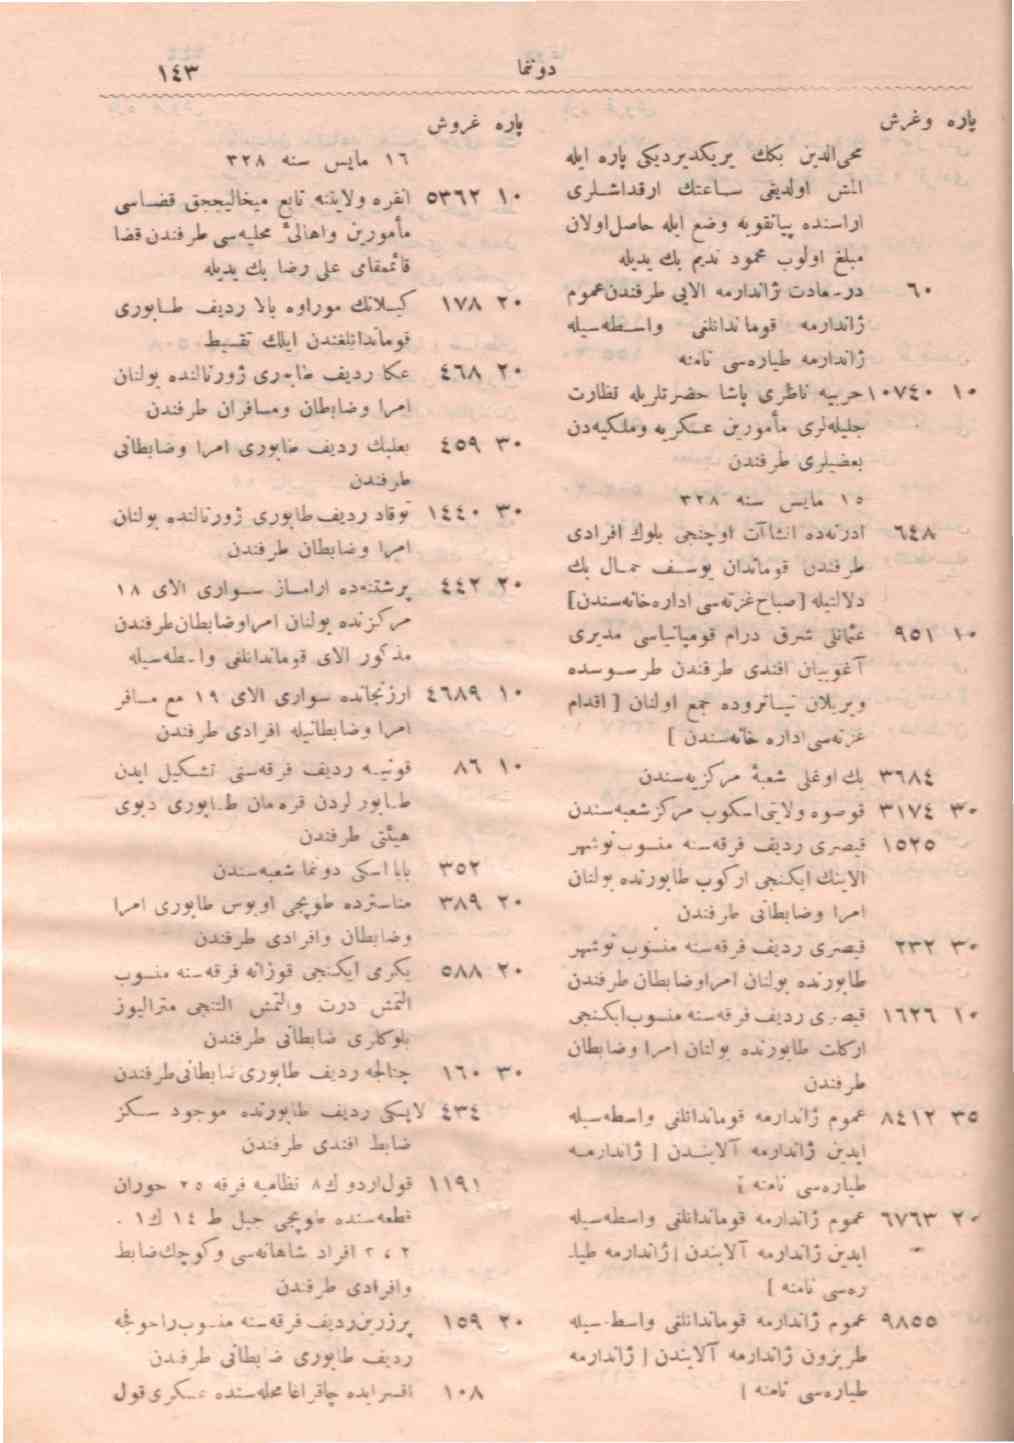 دوننما
١٤٣
پاره وغرش
محی‌الدین بكك بریكدیردیكی پاره ایله
المش اولدیغی ساعتك ارقداشلری
اراسنده پیانقویه وضع ایله حاصل اولان
مبلغ اولوب محمود ندیم بك یدیله
٦٠ درسعادت ژاندارمه الایی طرفندن عموم
ژاندارمه قوماندانلغی واسطه‌سیله
ژاندارمه طیاره‌سی نامنه
١٠ ١٠٧٤٠ حربیه ناظری پاشا حضرتلریله نظارت
جلیله‌لری مأمورین عسكریه وملكیه‌دن
بعضیلری طرفندن
١٥ مایس سنه ٣٢٨
٦٤٨ ادرنه‌ده انشاآت اوچنجی بلوك افرادی
طرفندن قوماندان یوسف جمال بك
دلالتیله [صباح غزته‌سی اداره خانه‌سندن]
١٠ ٩٥١ عثمانلی شرق درام قومپانیاسی مدیری
آغوبیان افندی طرفندن طرسوسده
ویریلان تیاتروده جمع اولنان [ اقدام
غزته‌سی اداره خانه‌سندن ]
٣٦٨٤ بك اوغلی شعبهٔ مركزیه‌سندن
٣٠ ٣١٧٤ قوصوه ولایتی اسكوب مركز شعبه‌سندن
١٥٢٥ قیصری ردیف فرقه‌سنه منسوب نوشهر
الاینك ایكنجی اركوب طابورنده بولنان
امرا وضابطانی طرفندن
٣٠ ٢٣٢ قیصری ردیف فرقه‌سنه منسوب نوشهر
طابورنده بولنان امرا وضابطان طرفندن
١٠ ١٦٢٦ قیصری ردیف فرقه‌سنه منسوب ایكنجی
اركلت طابورنده بولنان امرا وضابطان
طرفندن
٣٥ ٨٤١٢ عموم ژاندارمه قوماندانلغی واسطه‌سیله
ایدین ژاندارمه آلایندن [ ژاندارمه
طیاره‌سی نامنه ]
٢٠ ٦٧٦٣ عموم ژاندارمه قوماندانلغی واسطه‌سیله
ایدین ژاندارمه آلایندن [ ژاندارمه طیا-
ره‌سی نامنه ]
٩٨٥٥ عموم ژاندارمه قوماندانلغی واسطه‌سیله
طربزون ژاندارمه آلایندن [ ژاندارمه
طیاره‌سی نامنه ]
پاره غروش
١٦ مایس سنه ٣٢٨
١٠ ٥٣٦٢ انقره ولایتنه تابع میخالیججق قضاسی
مأمورین واهالیٔ محلیه‌سی طرفندن قضا
قائممقامی علی رضا بك یدیله
٢٠ ١٧٨ كیلانك موراوه بالا ردیف طابوری
قوماندانلغندن ایلك تقسیط
٢٠ ٤٦٨ عكا ردیف طابوری ژورنالنده بولنان
امرا وضابطان ومسافران طرفندن
٣٠ ٤٥٩ بعلبك ردیف طابوری امرا وضابطانی
طرفندن
٣٠ ١٤٤٠ توقاد ردیف طابوری ژورنالنده بولنان
امرا وضابطان طرفندن
٢٠ ٤٤٢ پرشتنه‌ده اراماز سواری الای ١٨
مركزنده بولنان امرا وضابطان طرفندن
مذكور الای قوماندانلغی واسطه‌سیله
١٠ ٤٦٨٩ ارزنجانده سواری الای ١٩ مع مسافر
امرا وضابطانیله افرادی طرفندن
١٠ ٨٦ قونیه ردیف فرقه‌سنی تشكیل ایدن
طابورلردن قره‌مان طابوری دپوی
هیئتی طرفندن
٣٥٢ بابا اسكی دوننما شعبه‌سندن
٢٠ ٣٨٩ مناسترده طوپچی اوبوس طابوری امرا
وضابطان وافرادی طرفندن
٢٠ ٥٨٨ یكرمی ایكنجی قوزانه فرقه‌سنه منسوب
التمش درت والتمش التنجی مترالیوز
بلوكلری ضابطانی طرفندن
٣٠ ١٦٠ چتالجه ردیف طابوری ضابطانی طرفندن
٤٣٤ لاپسكی ردیف طابورنده موجود سكز
ضابط افندی طرفندن
١١٩١ قول اردو ك ٨ نظامیه فرقه ٢٥ حوران
قطعه‌سنده طوپچی جبل ط ١٤ ك ١ .
٢ ، ٢ افراد شاهانه‌سی وكوچك ضابط
وافرادی طرفندن
٢٠ ١٥٩ پرزرین ردیف فرقه‌سنه منسوب راحوفجه
ردیف طابوری ضابطانی طرفندن
١٠٨ اقسرایده چاقراغا محله‌سنده عسكری قول